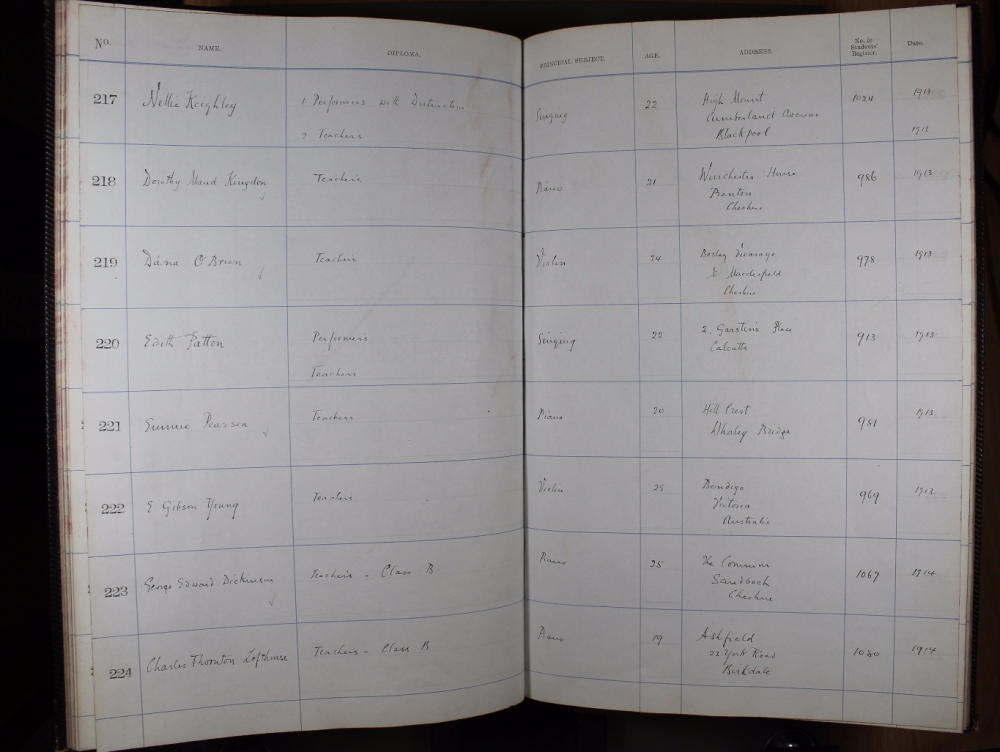 No. NAME. DIPLOMA. PRINCIPAL SUBJECT. AGE. ADDRESS. No. in Students' Register. Date.
217 Nellie Keighley 1 Performers with Distinction Singing 22 High Mount 1024 1913
Cumberland Avenue
2 Teachers Blackpool 1913
218 Dorothy Maud Kingdon Teachers Piano 21 Winchester House 986 1913
Cheshire
219 Dána O'Brien Teachers Violin 24 Bosley Vicarage 978 1913
Macclesfield
Cheshire
220 Edith Patton Performers Singing 22 2. Garstin's Place 913 1913
Calcutta
Teachers
221 Emmie Pearson Teachers Piano 20 Hill Crest 981 1913
Whaley Bridge
222 E Gibson Young Teachers Violin 25 Bendigo 969 1913
Victoria
Australia
223 George Edward Dickinson Teachers - Class B Piano 25 The Common 1067 1914
Sandbach
Cheshire
224 Charles Thornton Lofthouse Teachers - Class B Piano 19 Ashfield 1080 1914
22 York Road
Birkdale